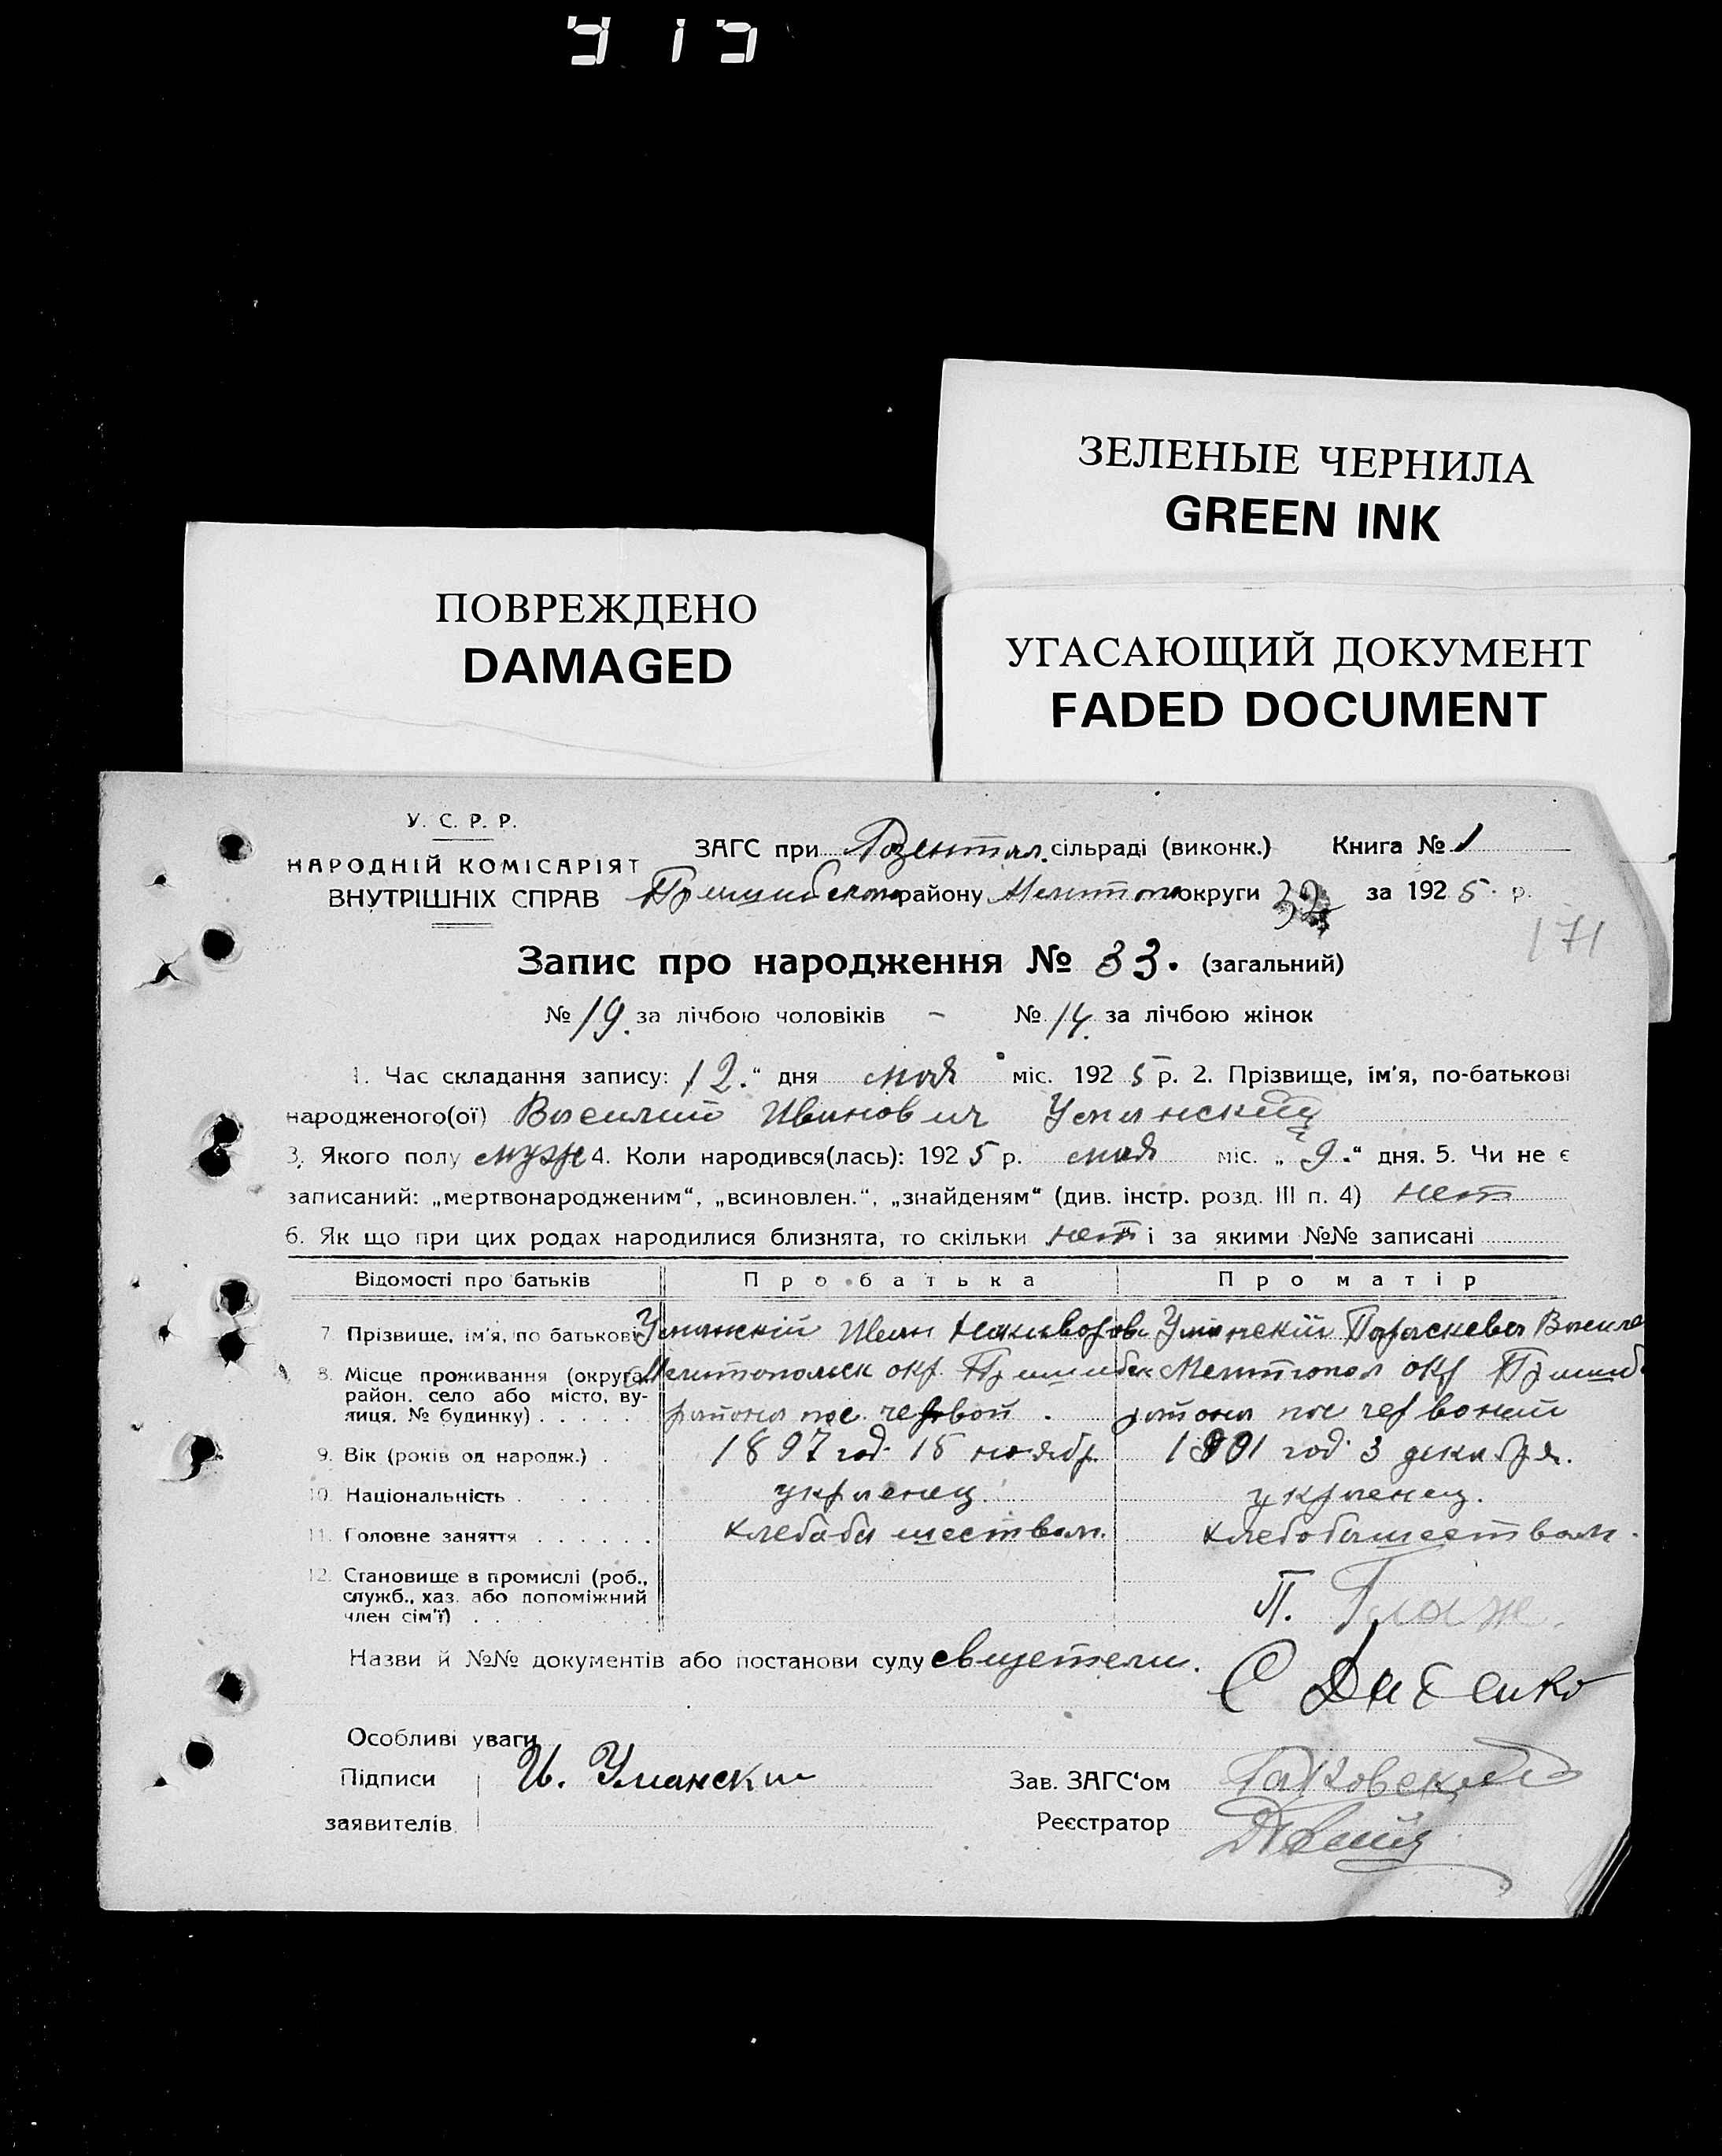 ЗЕЛЕНЫЕ ЧЕРНИЛА
GREEN INK
ПОВРЕЖДЕНО
DAMAGED
УГАСАЮЩИЙ ДОКУМЕНТ
FADED DOCUMENT
У. С. Р. Р.
НАРОДНІЙ КОМІСАРІЯТ
ВНУТРІШНІХ СПРАВ
ЗАГС при Розентал. сільраді (виконк.) Книга № 1
Пришибско району Мелитопо округи 32 за 1925 р.
171
Запис про народження № 33. (загальний)
№ 19. за лічбою чоловіків – № 14. за лічбою жінок
1. Час складання запису: 12.“ дня мая міс. 1925 р. 2. Прізвище, ім'я, по-батькові
народженого(ої) Василий Иванович Уманский
3. Якого полу муж 4. Коли народився(лась): 1925 р. мая міс. „ 9.“ дня. 5. Чи не є
записаний: „мертвонародженим“, „всиновлен.“, „знайденям“ (див. інстр. розд. III п. 4) нет
6. Як що при цих родах народилися близнята, то скільки нет і за якими №№ записані
Відомості про батьків Про батька Про матір
7. Прізвище, ім'я, по батькові Уманский Иван Уманский Параскева Василе
8. Місце проживання (округа, Мелитопольск окр. Пришибск Мелитопол окр Пришиб
район, село або місто, ву-
лиця, № будинку) . . . . . района пос. червон . района пос червоний
9. Вік (років од народж.) . 1897 год. 15 ноябр 1901 год. 3 декабря.
10. Національність . . . . . украенец. украенец.
11. Головне заняття . . . . . . хлебабашеством. хлебобашеством.
12. Становище в промислі (роб.,
служб., хаз. або допоміжний
член сім'ї) . . . . П.
Назви й №№ документів або постанови суду свидетели.
С
Особливі уваги
Підписи И. Умански Зав. ЗАГС'ом
заявителів Реєстратор